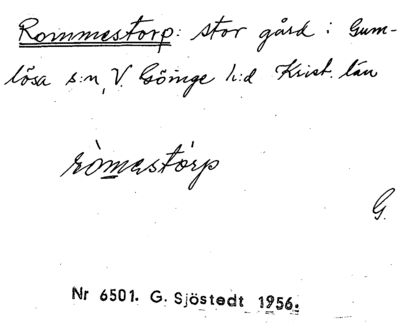 Rommestorp: stor gård i Gum-
lösa s:n, V. Göinge h:d Krist. län
ròmastórp
G.
Nr 6501. G. Sjöstedt 1956.